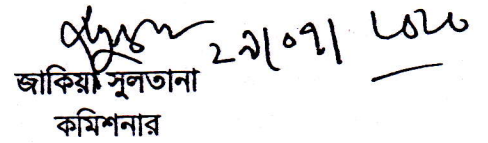 ২৯/০৭/২০২০
জাকিয়া সুলতানা
কমিশনার